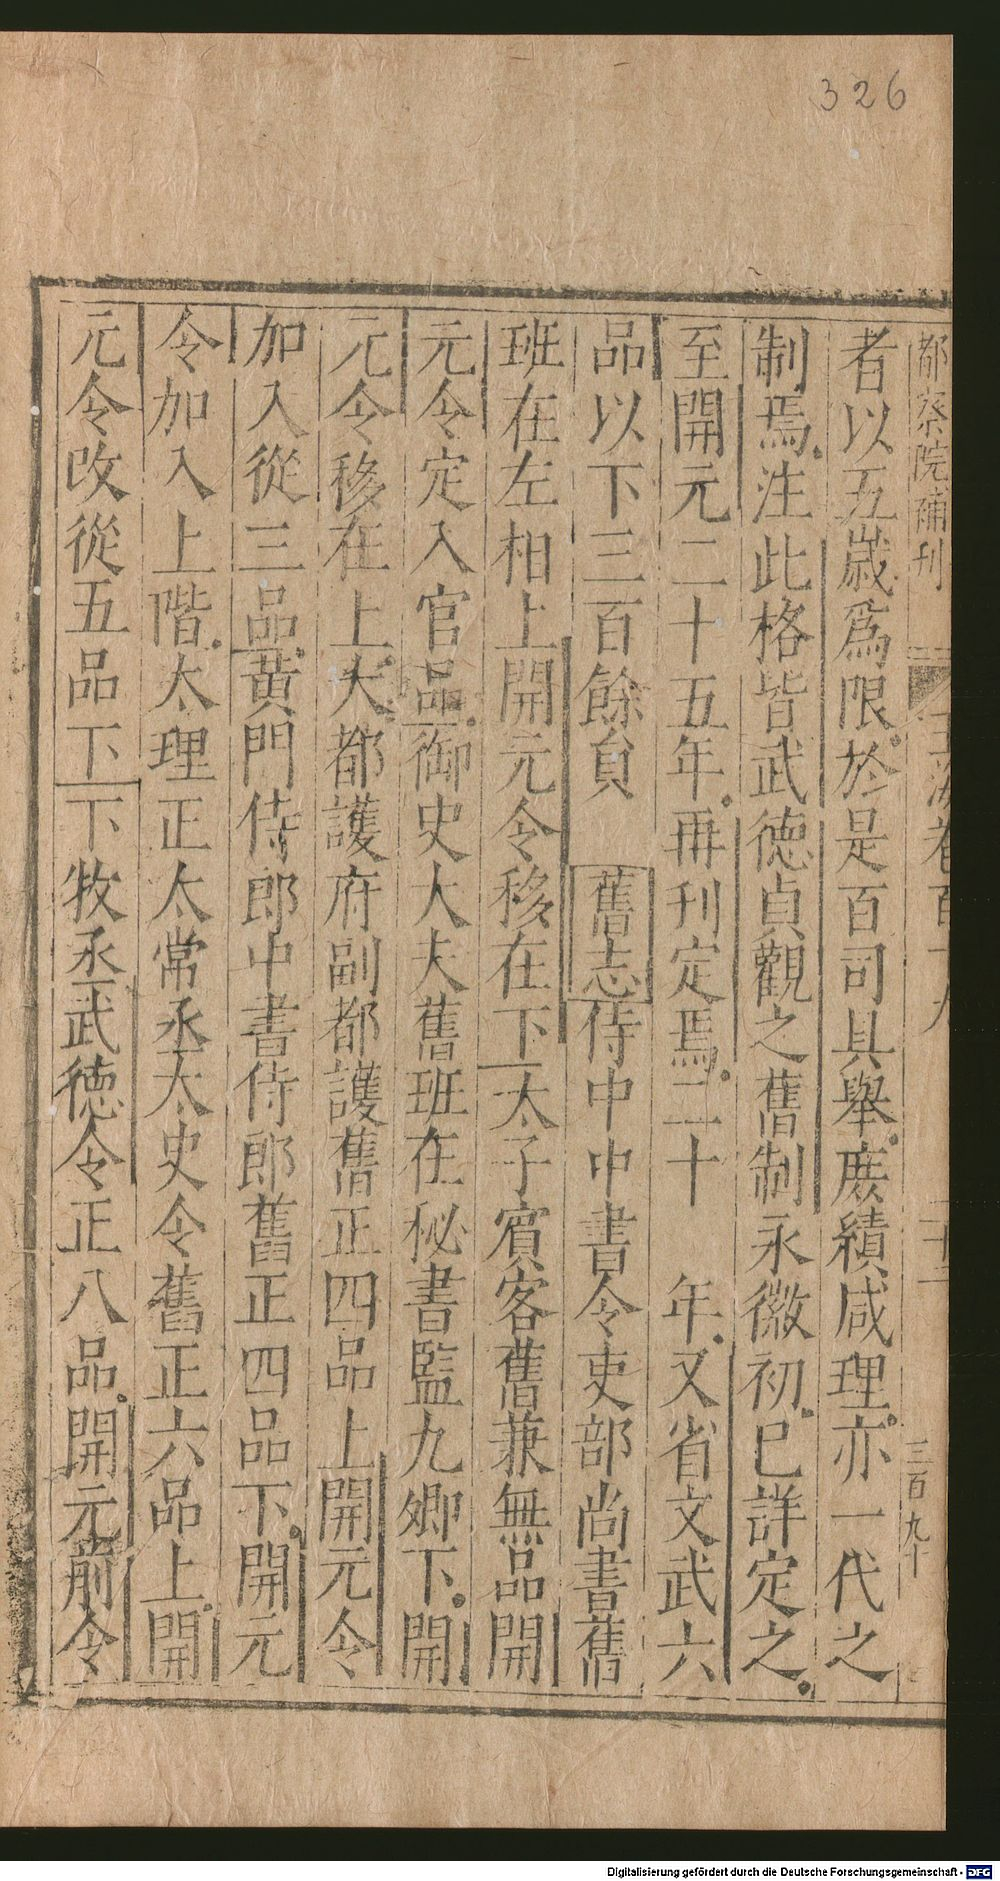 326
都察院補刊 玉海卷百十九 二十二 三百九十
者以五歲爲限於是百司具舉庶績咸理亦一代之
制焉注此格皆武德貞觀之舊制永徽初已詳定之
至開元二十五年再刊定焉二十 年又省文武六
品以下三百餘員 舊志侍中中書令吏部尚書舊
班在左相上開元令移在下太子賓客舊兼無品開
元令定入官品御史大夫舊班在秘書監九卿下開
元令移在上大都護府副都護舊正四品上開元令
加入從三品黄門侍郎中書侍郎舊正四品下開元
令加入上階太理正太常丞太史令舊正六品上開
元令改從五品下下牧丞武德令正八品開元前令
Digitalisierung gefördert durch die Deutsche Forschungsgemeinschaft - DFG